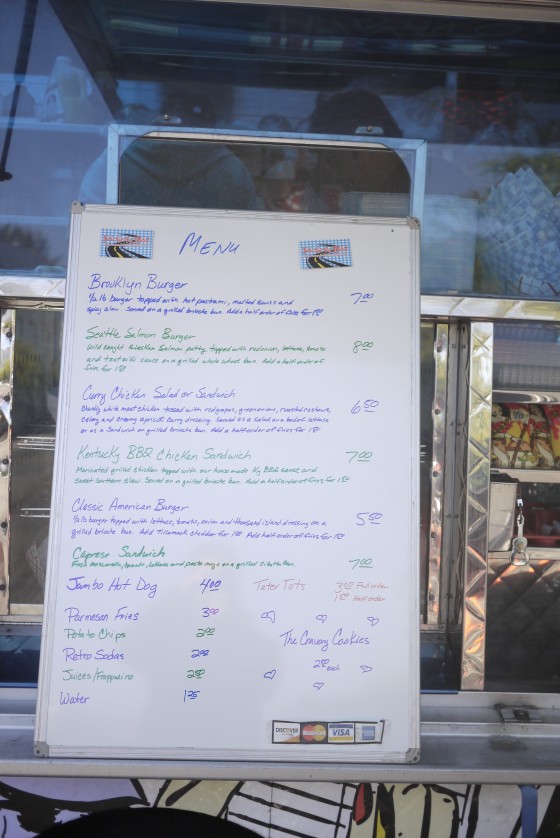 MENU
Brooklyn Burger 7.00
1/2 lb burger topped with hot pastrami, melted swiss and
spicy slaw. Served on a grilled brioche bun. Add a half order of fries for 1.50
Seattle Salmon Burger 8.00
Wild caught Alaskan Salmon patty topped with red onion, lettuce, tomato
and tzatziki sauce on a grilled whole wheat bun. Add a half order of
fries for 1.50
Curry Chicken Salad or Sandwich 6.50
Chunky white meat chicken tossed with red grapes, green onions, roasted cashews,
celery and creamy apricot curry dressing. Served as a salad on a bed of lettuce
or as a Sandwich on grilled brioche bun. Add a half order of fries for 1.50
Kentucky BBQ Chicken Sandwich 7.00
Marinated grilled chicken topped with our house made Ky BBQ sauce and
Sweet Southern Slaw. Served on a grilled brioche bun. Add a half order of fries for 1.50
Classic American Burger 5.50
1/2 lb burger topped with lettuce, tomato, onion and thousand island dressing on a
grilled brioche bun. Add Tillamook cheddar for 1.00 Add half order of fries for 1.50
Caprese Sandwich 7.00
Fresh mozzarella, tomato, lettuce and pesto mayo on a grilled ciabatta bun.
Jambo Hot Dog 4.00 Tater Tots 3.00 Full order
1.50 Half order
Parmesan Fries 3.00
Potato Chips 2.00 The Cravory Cookies
Retro Sodas 2.00 2.00 each
Juices/Frappucino 2.50
Water 1.25
DISCOVER MasterCard VISA